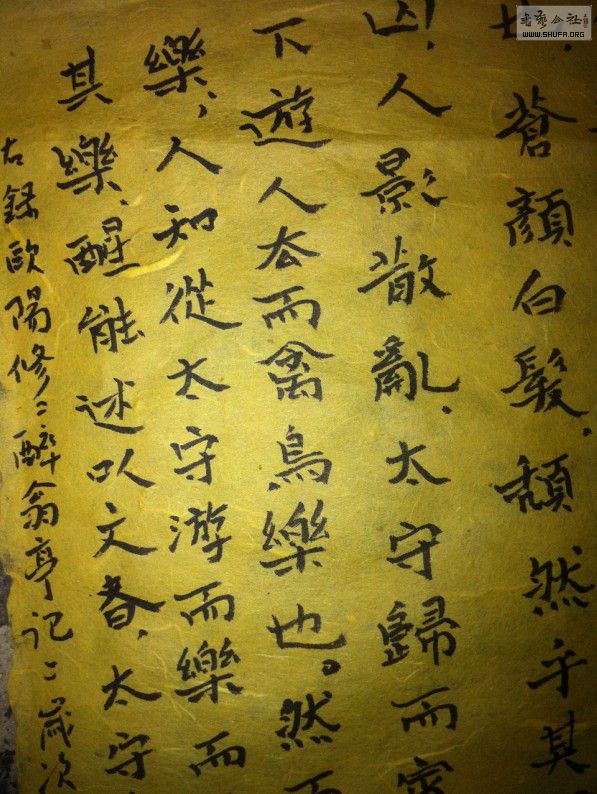 也，蒼顏白髮，頹然乎其
山，人影散亂，太守歸而賓
下遊人去而禽鳥樂也。然而
樂，人知從太守游而樂而
其樂，醒能述以文者，太守
右錄歐陽修：醉翁亭記：歲次
WWW.SHUFA.ORG